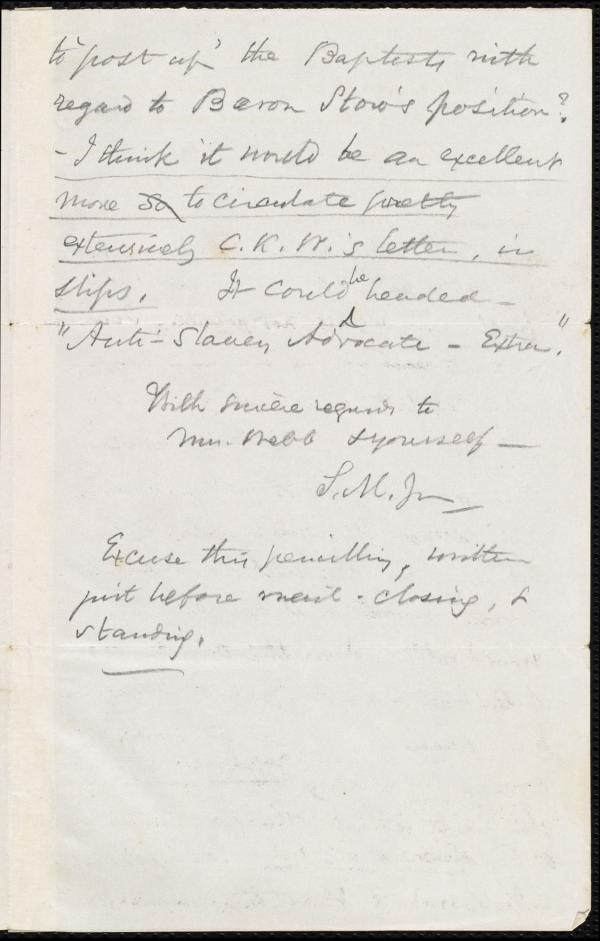 to "post up" the Baptists with
regard to Baron Stow's position?
- I think it would be an excellent
move so to circulate pretty
extensively C. K. W.'s letter, in
slips. It could be headed -
"Anti-Slavery Advocate - Extra."
With sincere regards to
Mrs. Webb & yourself -
S. M. Jr
Excuse this pencilling, written
just before mail-closing, &
standing.